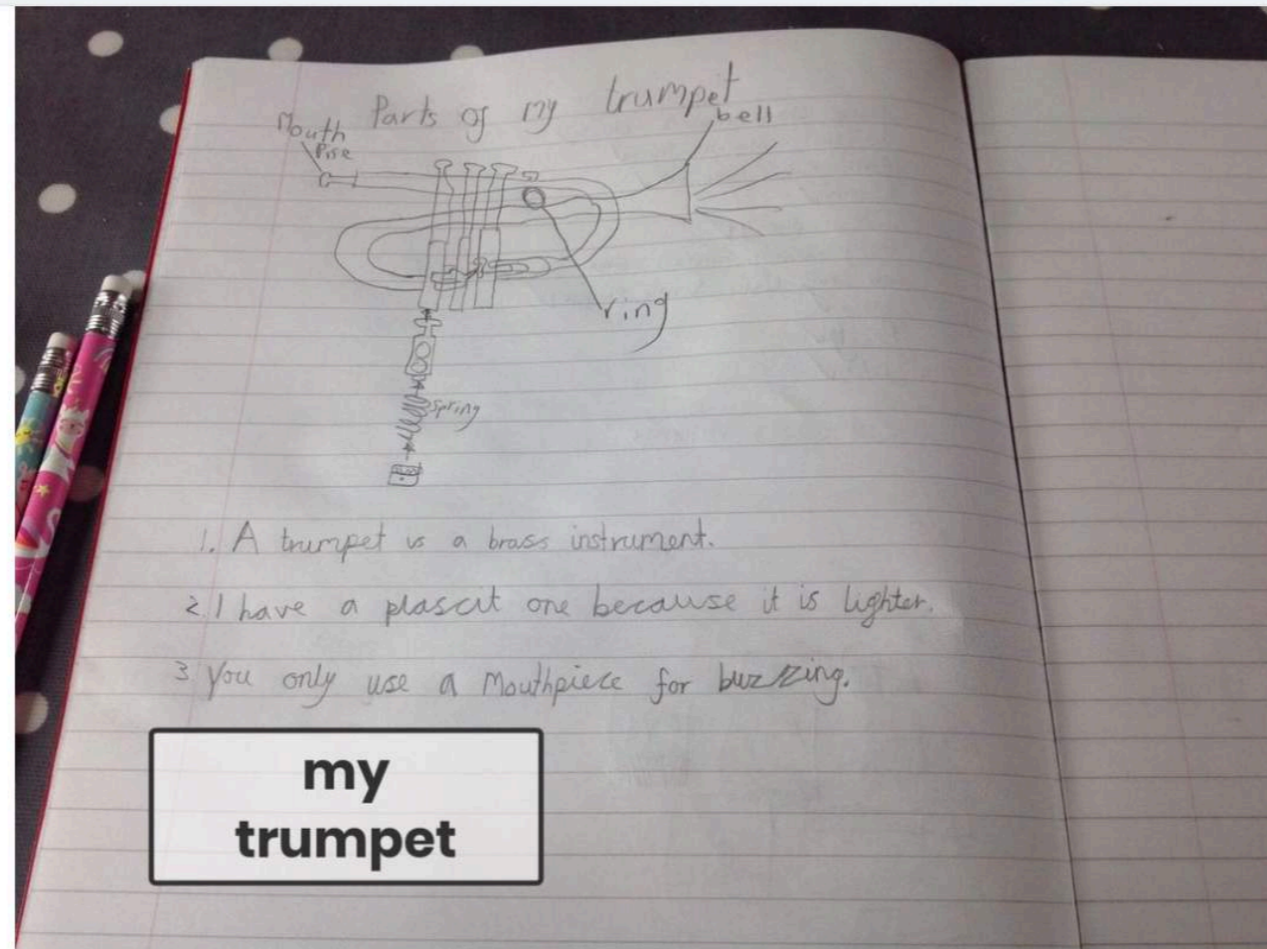 Parts of my trumpet
Mouth
Pise
bell
ring
spring
1. A trumpet is a brass instrument.
2. I have a plascit one because it is lighter.
3 You only use a Mouthpiece for buzzing.
my
trumpet